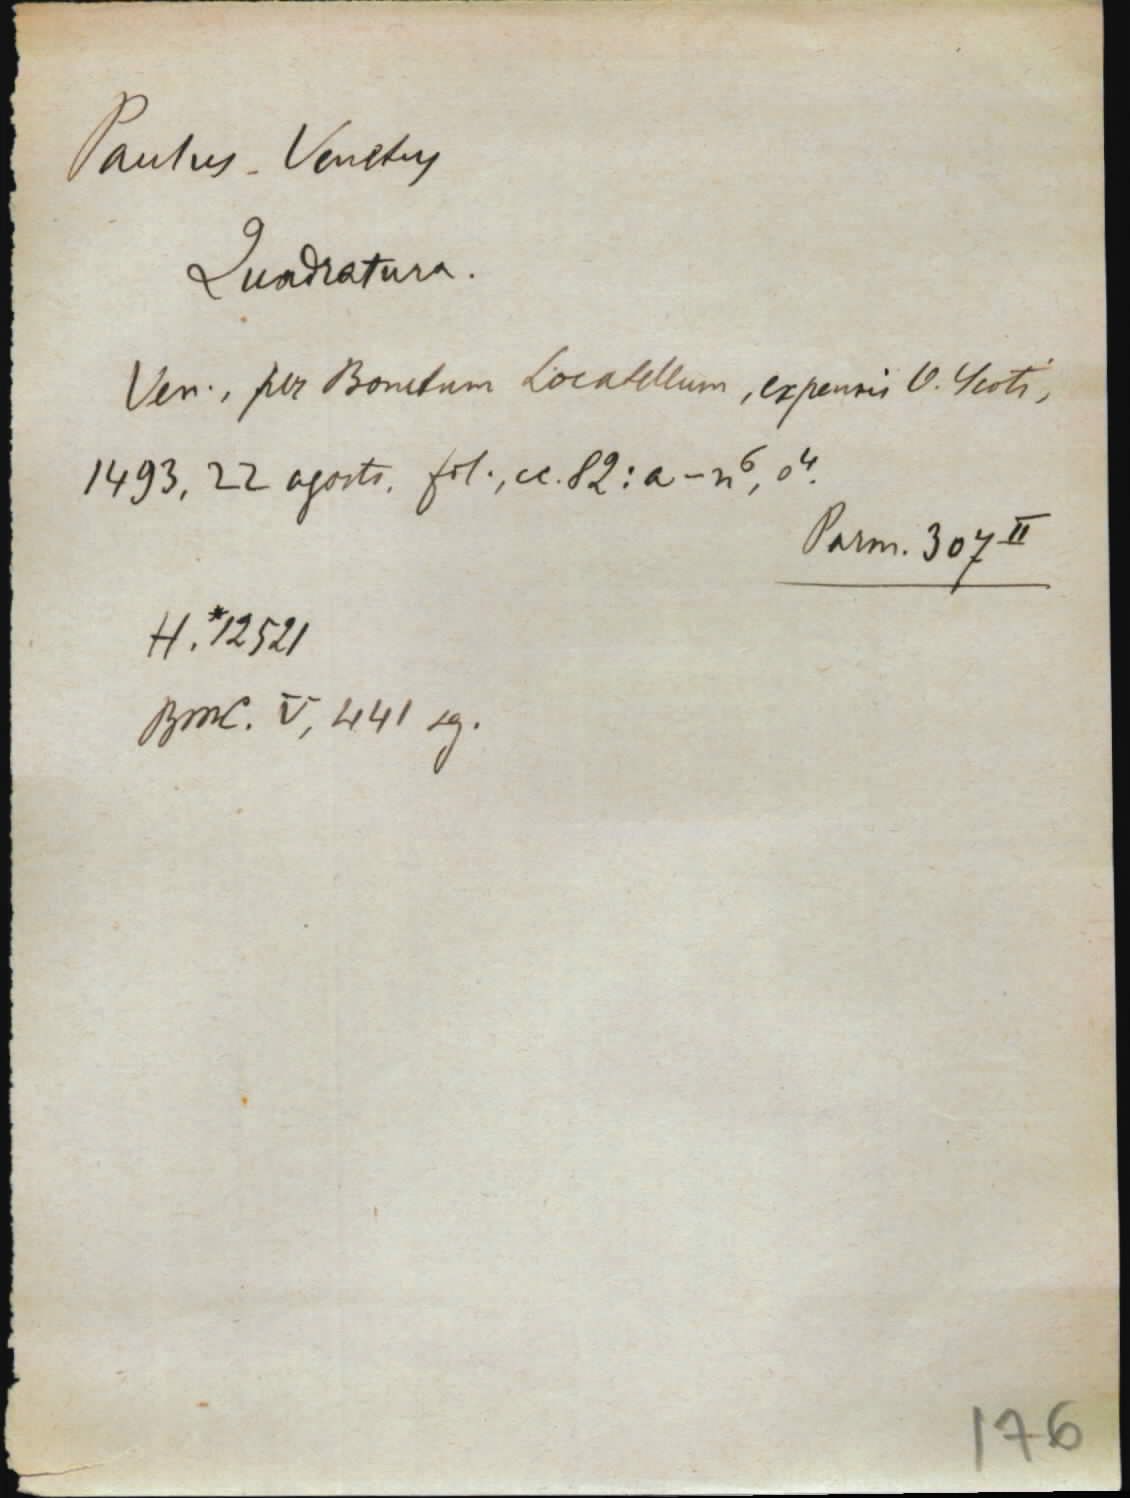 Paulus Venetus
Quadratura.
Ven., per Bonetum Locatellum, expensis O. Scoti,
1493, 22 agosto. fol., cc. 82: a-n⁶, o⁴.
Parm. 307 II
H.*12521
BMC. V, 441 sg.
176